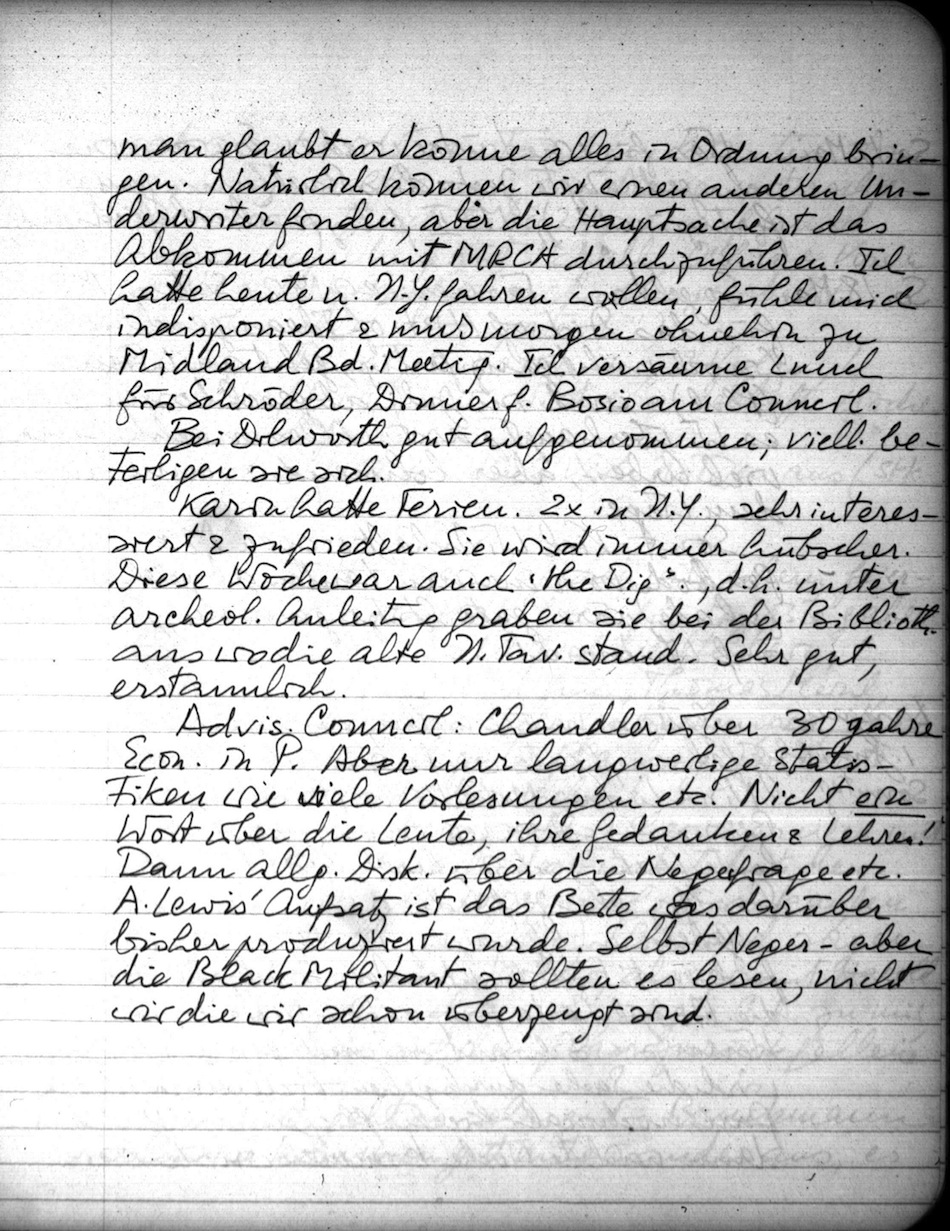 man glaubt er könne alles in Ordnung brin-
gen. Natürlich können wir einen anderen Un-
derwriter finden, aber die Hauptsache ist das
Abkommen mit MRCA durchzuführen. Ich
hatte heute n. N.Y. fahren wollen, fühle mich
indisponiert & muss morgen ohnehin zu
Midland Bd. Meetig. Ich versäume Lunch
für Schröder, Dinner f. Bosio am Council.
Bei Dilworth gut aufgenommen; viell. be-
teiligen sie sich.
Karin hatte Ferien. 2x in N.Y., sehr interes-
siert & zufrieden. Sie wird immer hübscher.
Diese Woche war auch "the Dig"., d.h. unter
archeol. Anleitg graben sie bei der Biblioth.
aus wo die alte N. Tav. stand. Sehr gut,
erstaunlich.
Advis. Council: Chandler über 30 Jahre
Econ. in P. Aber nur langweilige Statis-
tiken wie viele Vorlesungen etc. Nicht ein
Wort über die Leute, ihre Gedanken & Lehren!
Dann allg. Disk. über die Negerfrage etc.
A. Lewis' Aufsatz ist das Beste was darüber
bisher produziert wurde. Selbst Neger - aber
die Black Militant sollten es lesen, nicht
wir die wir schon überzeugt sind.